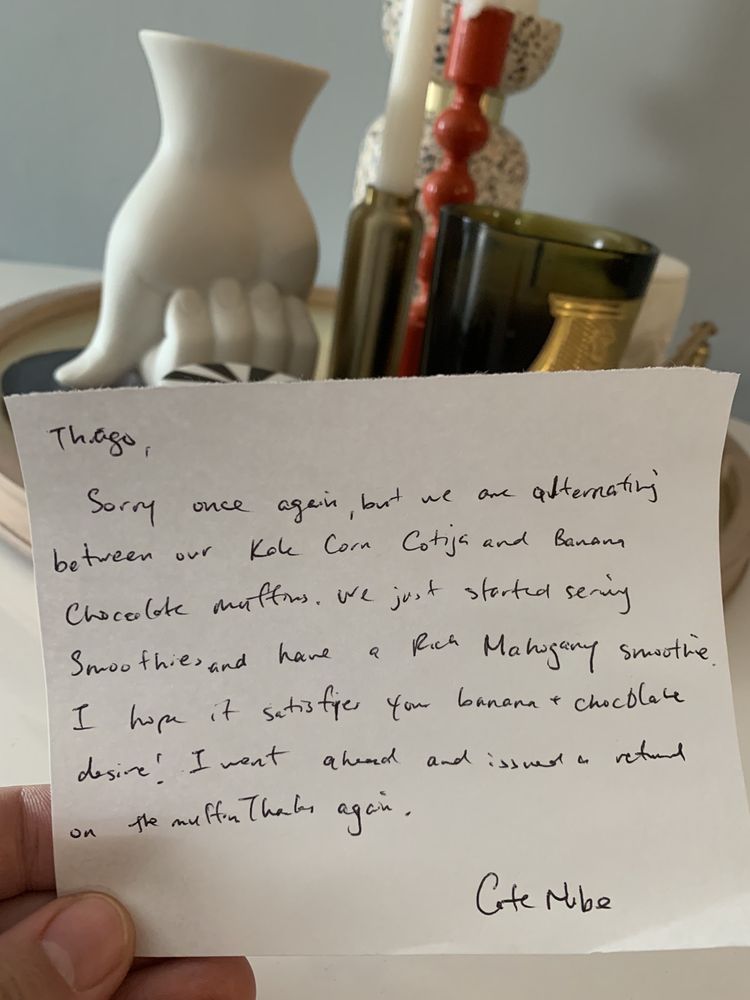 Thiago,
Sorry once again, but we are alternating
between our Kale Corn Cotija and Banana
Chocolate muffins. We just started serving
Smoothies, and have a Rich Mahogany smoothie.
I hope it satisfyes your banana + chocolate
desire! I went ahead and issued a refund
on the muffin Thanks again.
Cafe